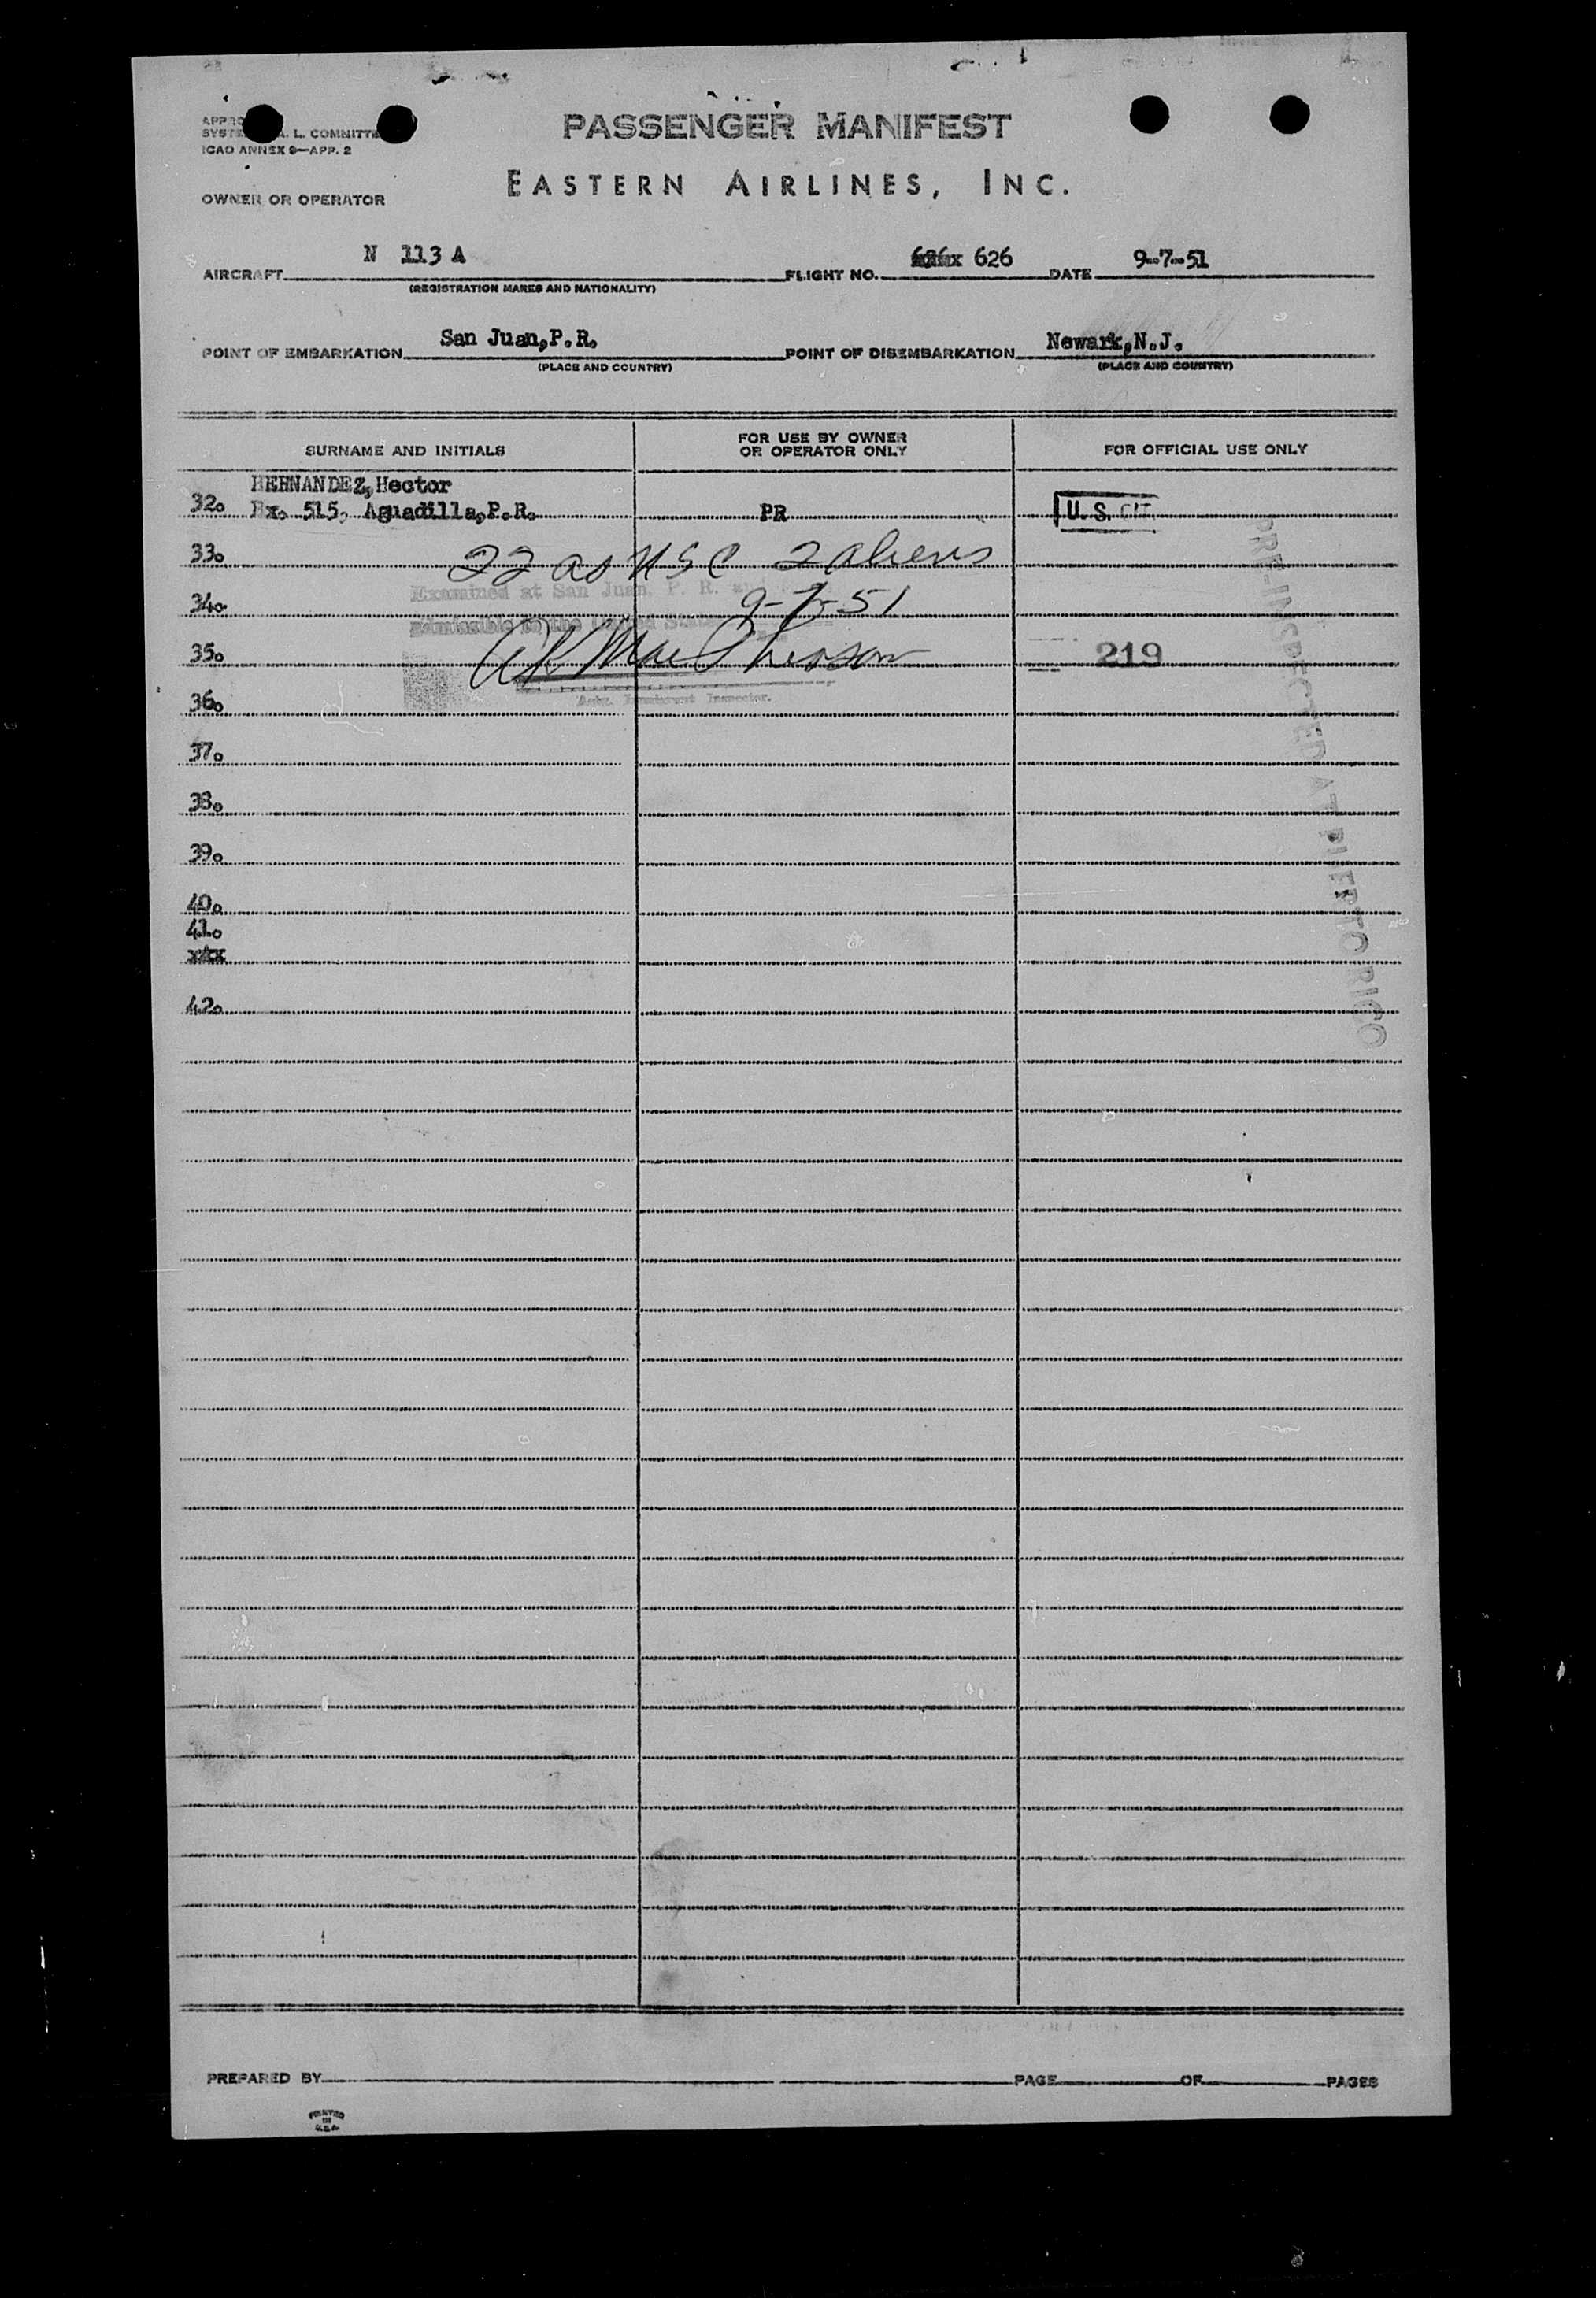 PASSENGER MANIFEST
L. COMMITTE
ICAO ANNEX 9—APP. 2
EASTERN AIRLINES, INC.
OWNER OR OPERATOR
AIRCRAFT N 113 A FLIGHT NO. 626 DATE 9-7-51
(REGISTRATION MARKS AND NATIONALITY)
POINT OF EMBARKATION San Juan,P.R. POINT OF DISEMBARKATION Newark,N.J.
(PLACE AND COUNTRY) (PLACE AND COUNTRY)
SURNAME AND INITIALS FOR USE BY OWNER OR OPERATOR ONLY FOR OFFICIAL USE ONLY
HERNANDEZ,Hector
32. Bx. 515, Aguadilla,P.R. PR U.S. CIT.
33. 22 as USC 2 aliens
Examined at San Juan, P. R. and
34. 9-7-51
admissible to the United States
35. 219
Inspector.
36.
37.
38.
39.
40.
41.
42.
PRE-INSPECTED AT PUERTO RICO
PREPARED BY PAGE OF PAGES
PRINTED
IN
U.S.A.